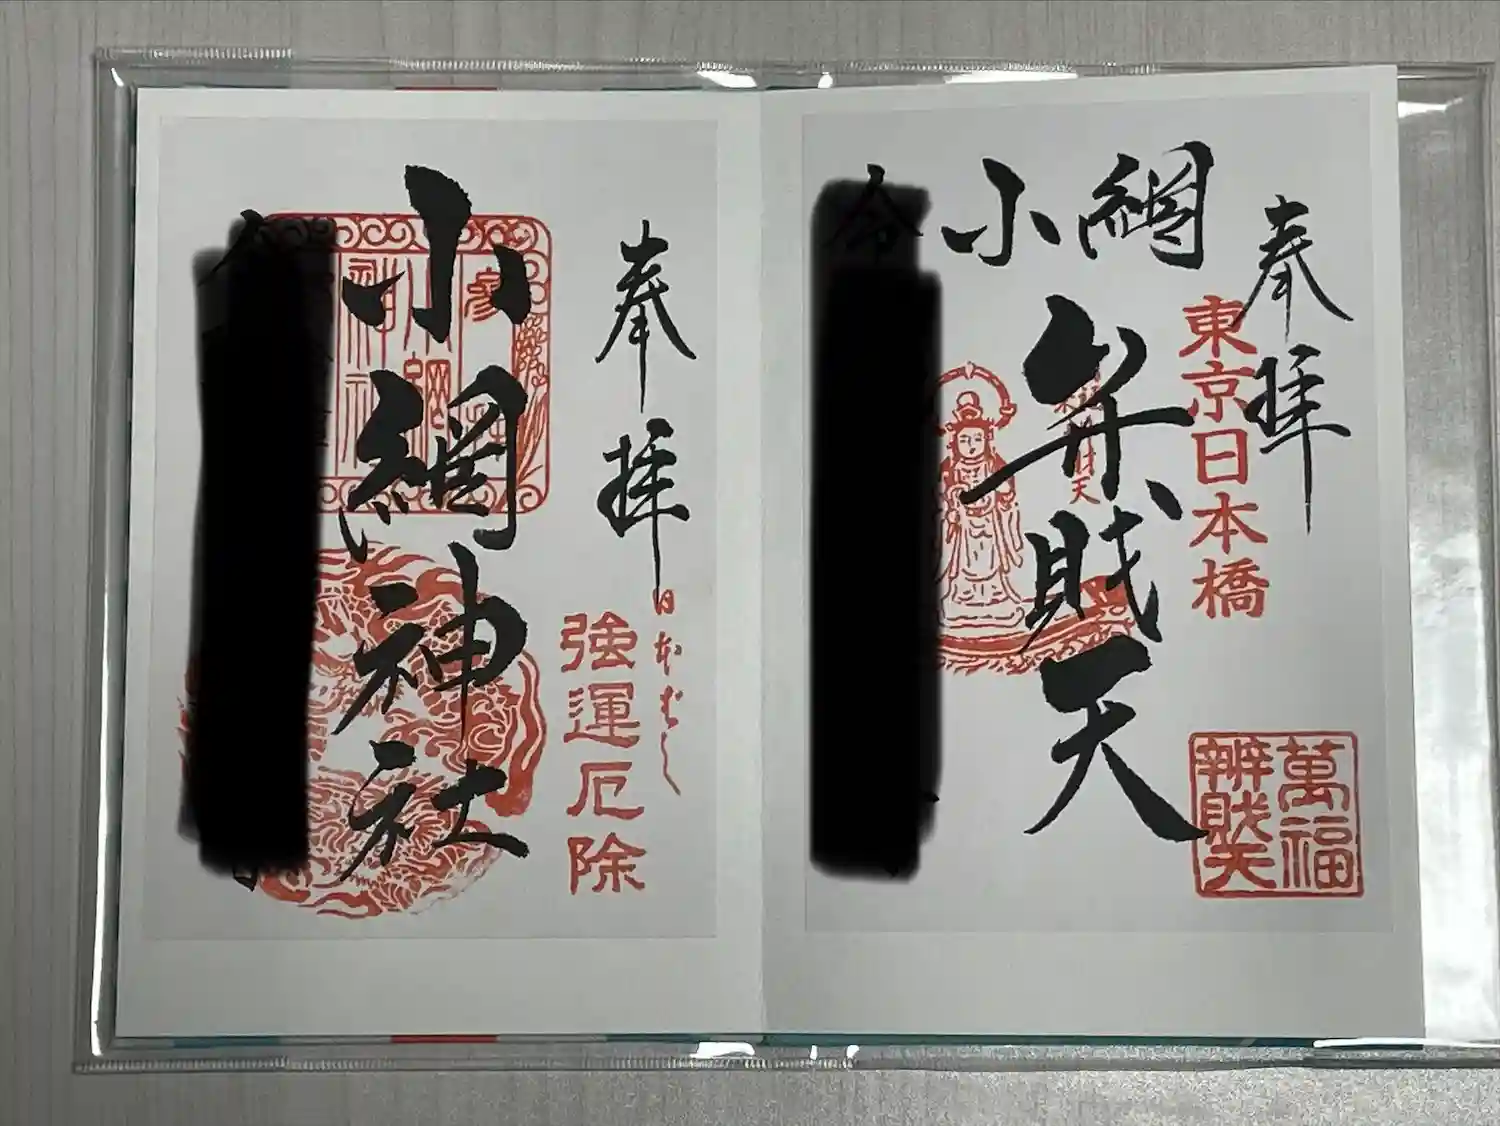 奉拝
東京日本橋
小綱
弁財天
萬福
辨財天
令
奉拝
日本ばし
強運厄除
小網神社